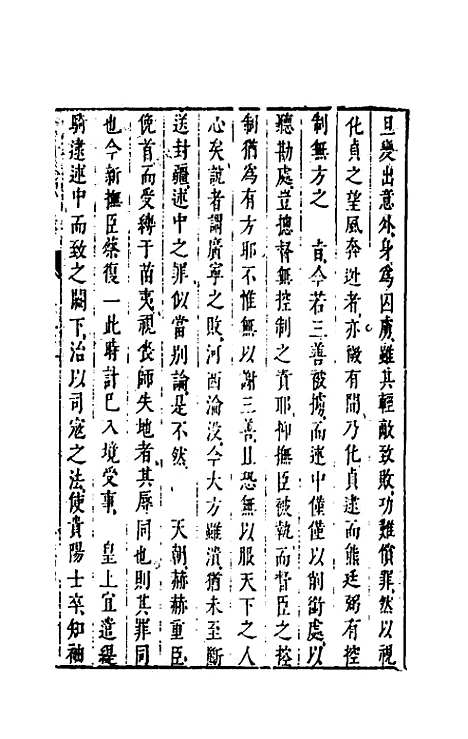 旦變出意外身為囚虜雖其輕敵致敗功難償罪然以視
化貞之望風奔逃者亦微有間乃化貞逮而熊廷弼有控
制無方之　旨今若三善被擄而述中僅僅以削銜處以
聽勘處豈摠督無控制之責耶抑撫臣被執而督臣之控
制猶為有方耶不惟無以謝三善且恐無以服天下之人
心矣說者謂廣寧之敗河西淪沒今大方雖潰猶未至斷
送封疆述中之罪似當別論是不然　　天朝赫赫重臣
俛首而受縛于苗夷視喪師失地者其辱同也則其罪同
也今新撫臣蔡復一此時計已入境受事　皇上宜遣緹
騎逮述中而致之闕下治以司寇之法使貴陽士卒知袖